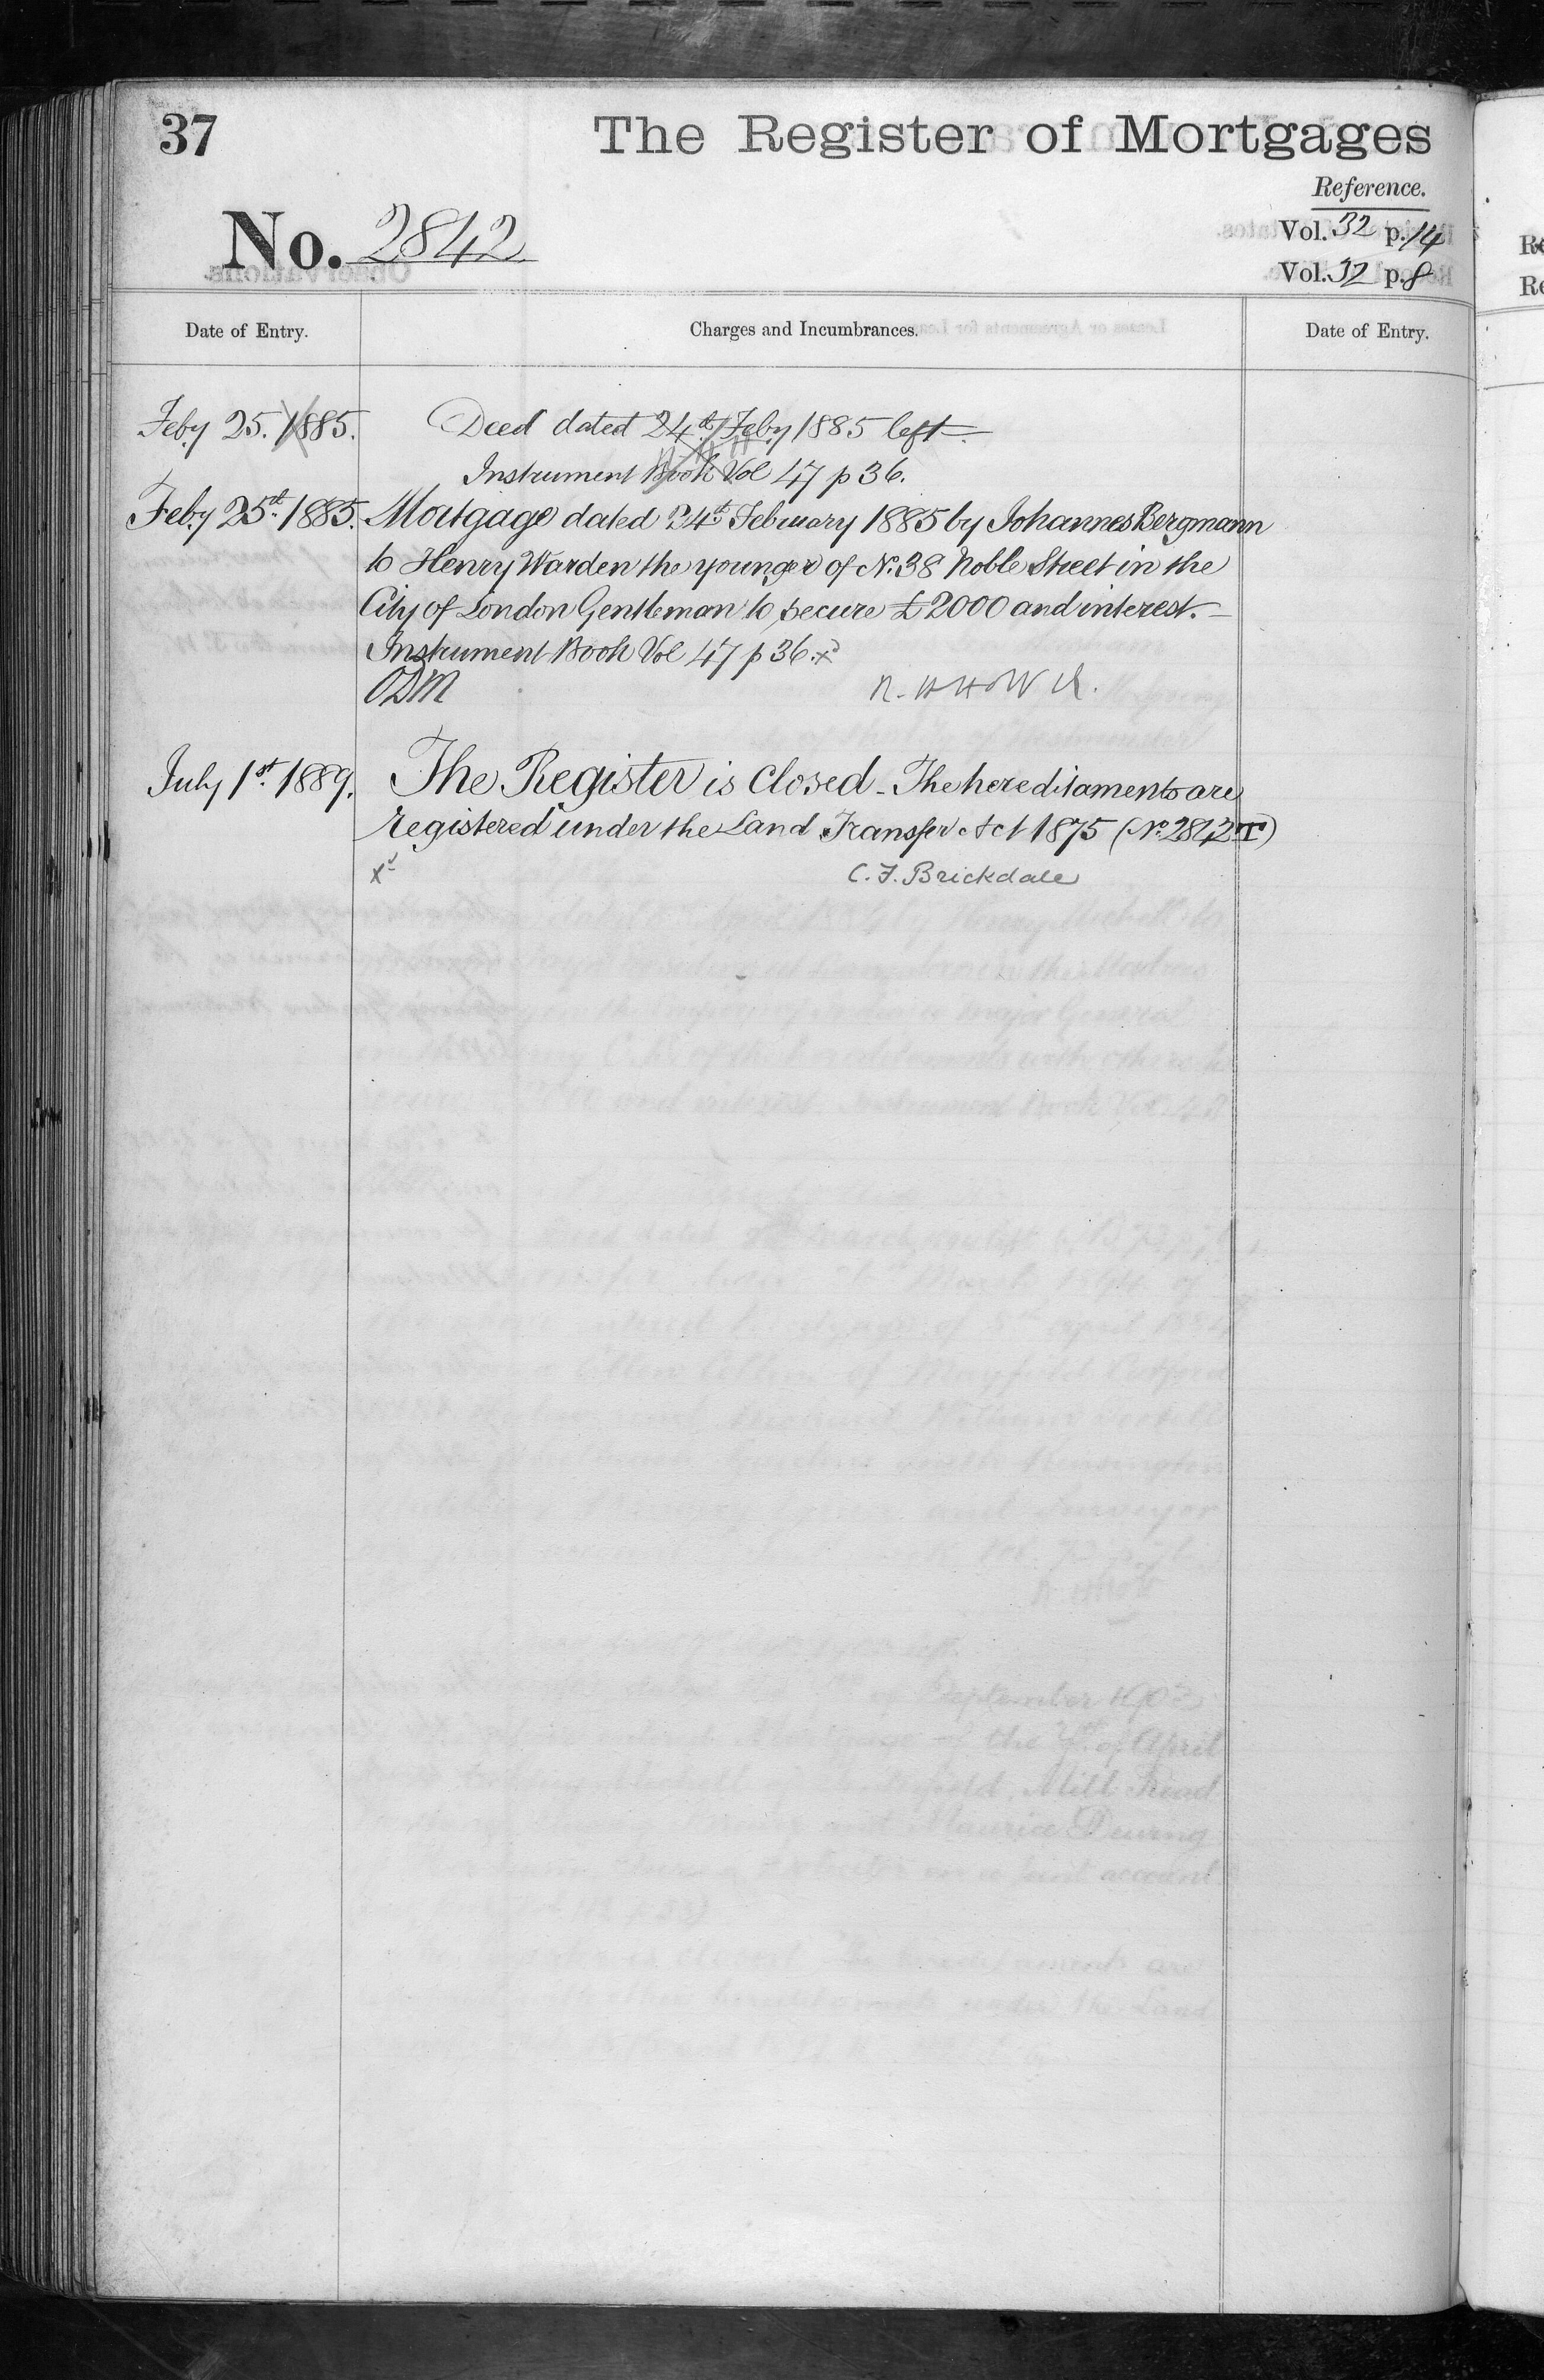 37
The Register of Mortgages
Reference.
No. 2842
Vol. 32 p. 14
Vol. 32 p. 8
Date of Entry.
Charges and Incumbrances.
Date of Entry.
Feby 25. 1885.
Deed dated 24th Feby 1885 left
Instrument Book Vol 47 p 36.
Feby 25th 1885.
Mortgage dated 24th February 1885 by Johannes Bergmann
to Henry Warden the younger of No. 38 Noble Street in the
City of London Gentleman to secure £2000 and interest.
Instrument Book Vol 47 p 36.
July 1st 1889.
The Register is closed - The hereditaments are
registered under the Land Transfer Act 1875 (No. 2842 T)
C. F. Brickdale